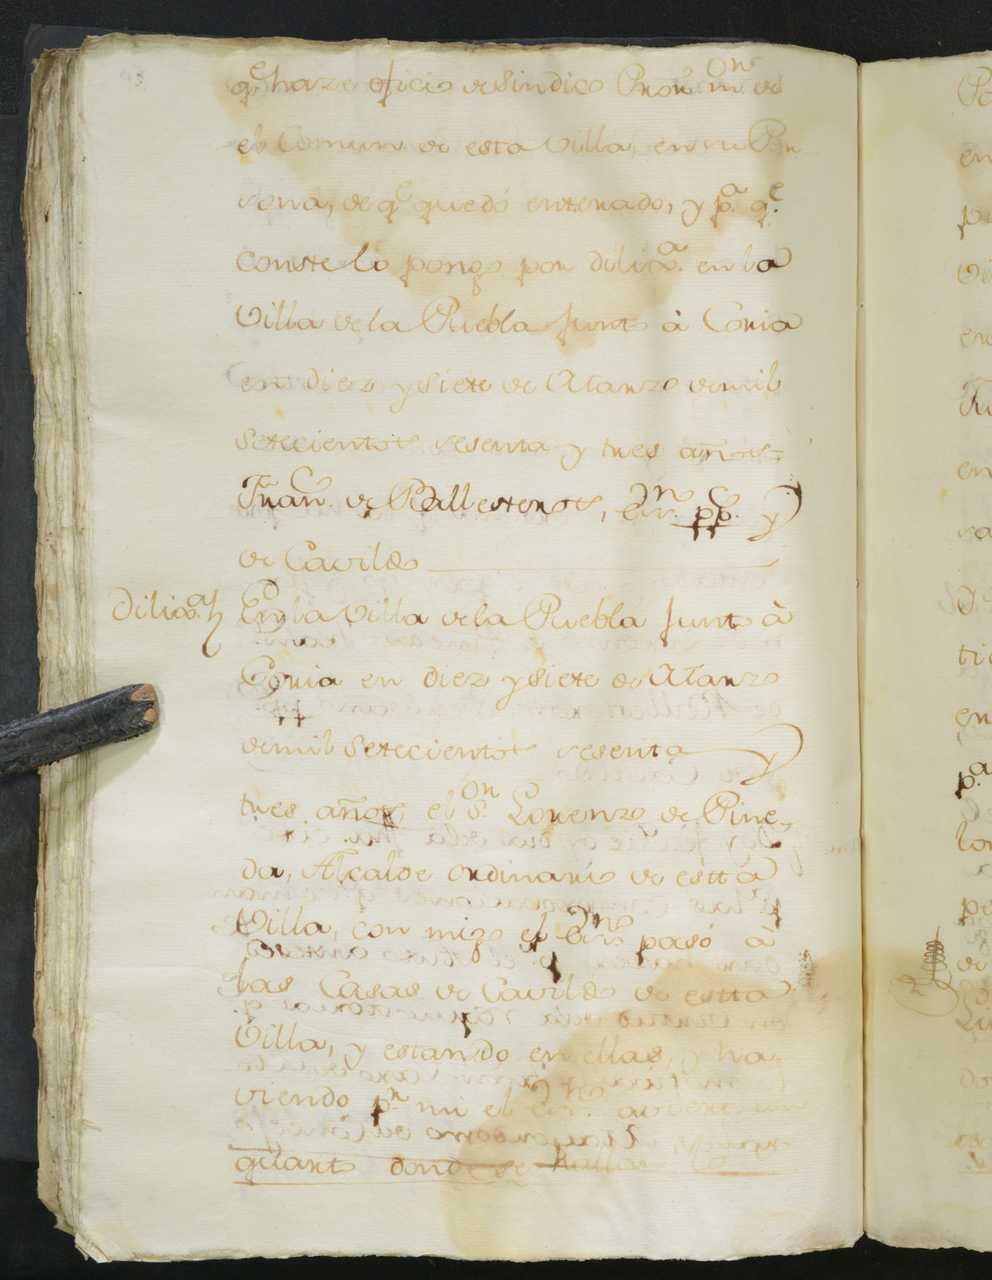 q.e haze oficio de Sindico Procur.on de
el Comun de esta Villa, en su Per
sona, de q.e quedó enterado, y p.a q.e
conste lo pongo por dilix.a en la
Villa de la Puebla junto à Coria
en diez y siete de Marzo de mil
setecientos sesenta y tres años=
Fran.co de Ballesteros, Ess.no pp.co y
de Cavildo
Dilix.a
En la Villa de la Puebla junto à
Coria en diez y siete de Marzo
de mil setecientos sesenta y
tres años, el S.on Lorenzo de Pine
da, Alcalde ordinario de estta
Villa, con migo el Ess.no pasó à
las Casas de Cavildo de estta
Villa, y estando en ellas, y ha
viendo p.r mi el Ess.no
quarto donde se halla